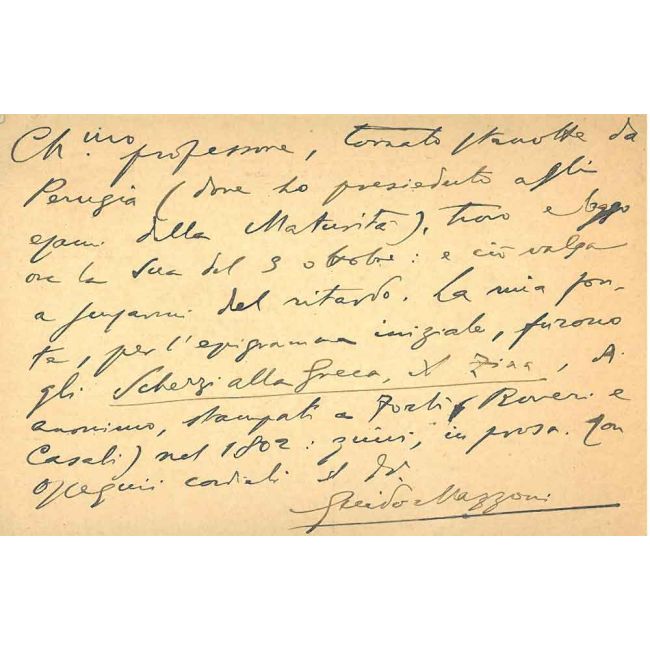 Ch.mo professore, tornato stanotte da
Perugia (dove ho presieduto agli
esami della Maturità), trovo e leggo
ora la Sua del 3 ottobre: e ciò valga
a scusarmi del ritardo. La mia fon-
te, per l'epigramma iniziale, furono
gli Scherzi alla Greca, di
anonimo, stampati a Forlì (Roveri e
Casali) nel 1802: in prosa. Con
ossequi cordiali il
Guido Mazzoni